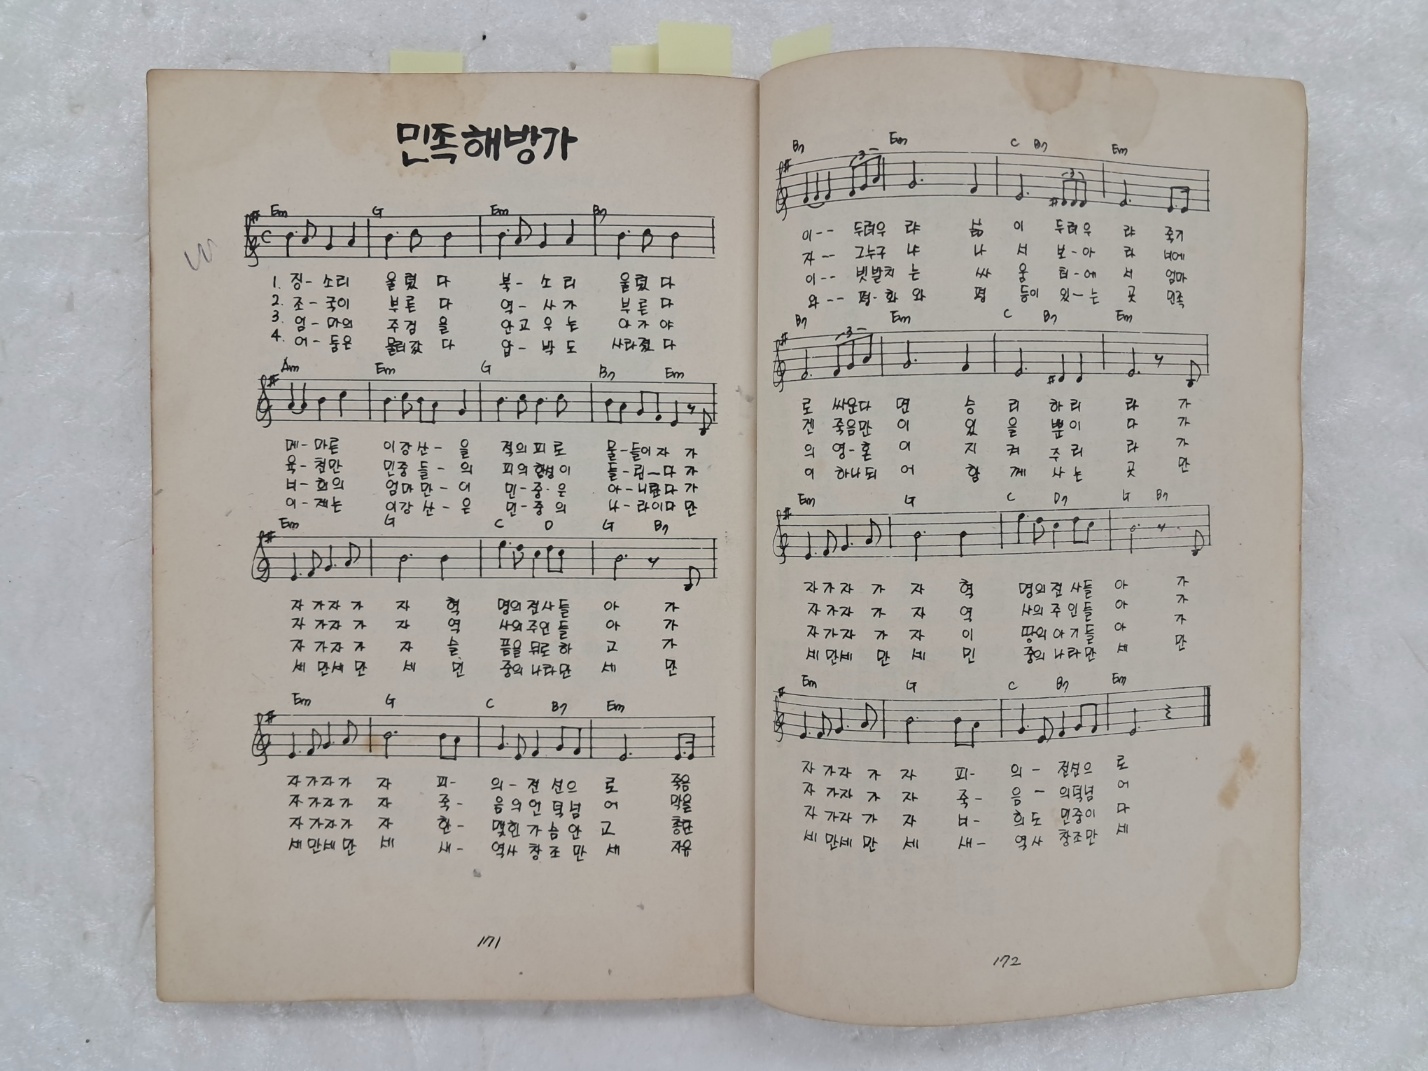 민족해방가
Em G Em B7
C
1. 징- 소리 울렸 다 북- 소 리 울렸 다
2. 조- 국이 부른 다 역- 사 가 부른 다
3. 엄- 마의 주검 을 안고 우 는 아가 야
4. 어- 둠은 물러갔 다 압- 박 도 사라졌 다
Am Em G B7 Em
메- 마른 이강산- 을 적의 피 로 물-들이자 가
육- 천만 민중 들- 의 피의 함성 이 들-린-다 가
너- 희의 엄마 만- 이 민- 중- 은 아-니란다 가
이- 제는 이강 산- 은 민- 중 의 나-라이다 만
Em G C D G B7
자 가자 가 자 혁 명의 전사들 아 가
자 가자 가 자 역 사의 주인들 아 가
자 가자 가 자 슬 픔을 뒤로 하 고 가
세 만세 만 세 민 중의 나라만 세 만
Em G C B7 Em
자 가자 가 자 피- 의- 전 선으 로 죽음
자 가자 가 자 죽- 음의 언 덕넘 어 막을
자 가자 가 자 한- 맺힌 가 슴안 고 총단
세 만세 만 세 새- 역사 창 조 만 세 자유
171
B7 Em C B7 Em
3 3
이-- 두려우 랴 삶 이 두려우 랴 죽기
자-- 그누구 냐 나 서 보-아 라 너에
이-- 빗발치 는 싸 움 터-에 서 엄마
와-- 평-화 와 평 등이 있-는 곳 민족
B7 Em C B7 Em
3
로 싸운다 면 승 리 하리 라 가
겐 죽음만 이 있 을 뿐이 다 가
의 영-혼 이 지 켜 주리 라 가
이 하나되 어 함 께 사는 곳 만
Em G C D7 G B7
자 가자 가 자 혁 명의 전 사들 아 가
자 가자 가 자 역 사의 주 인들 아 가
자 가자 가 자 이 땅의 아 기들 아 가
세 만세 만 세 민 중의 나라만 세 만
Em G C B7 Em
자 가자 가 자 피- 의- 전선으 로
자 가자 가 자 죽- 음- 의덕넘 어
자 가자 가 자 너- 희도 민중이 다
세 만세 만 세 새- 역사 창조만 세
172